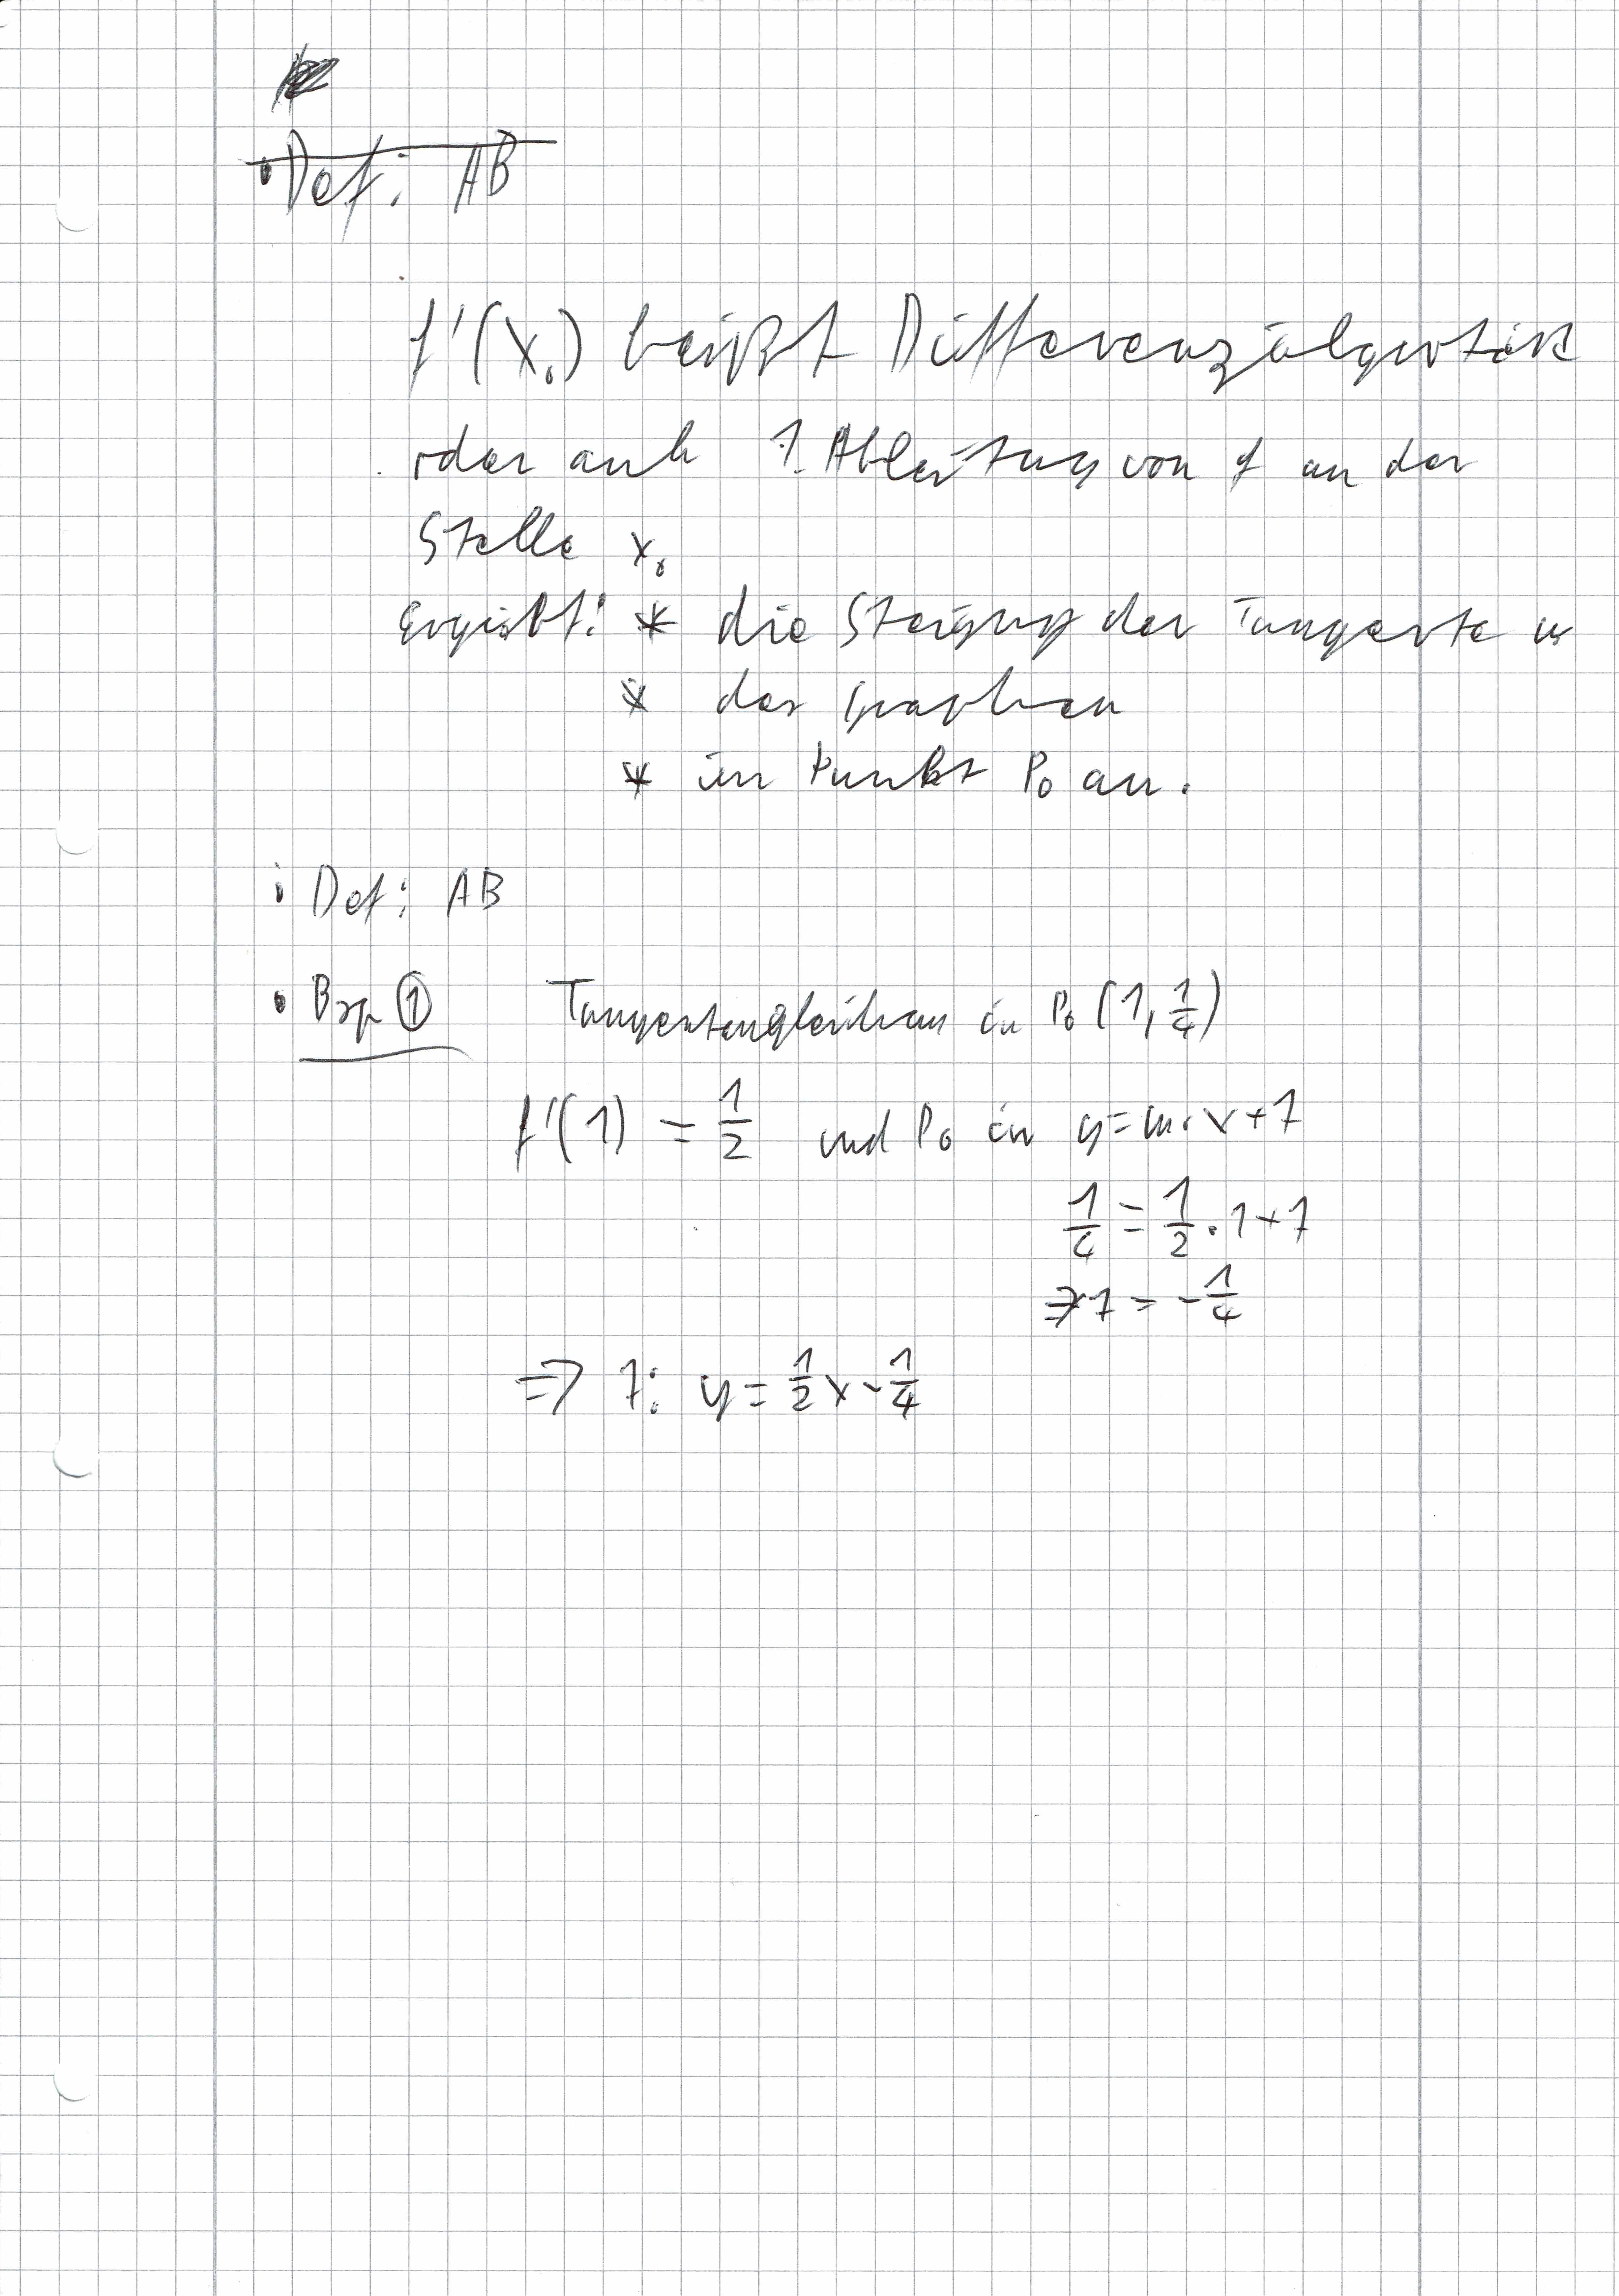 • Def: AB
f'(x₀) heißt Differenzialquotient
oder auch 1. Ableitung von f an der
Stelle x₀
Ergibt: * die Steigung der Tangente
* des Graphen
* im Punkt P₀ an.
• Def: AB
• Bsp ① Tangentengleichung in P₀ (1, 1/4)
f'(1) = 1/2 und P₀ in y = m·x+t
1/4 = 1/2 · 1 + t
⇒ t = -1/4
⇒ T: y = 1/2 x - 1/4